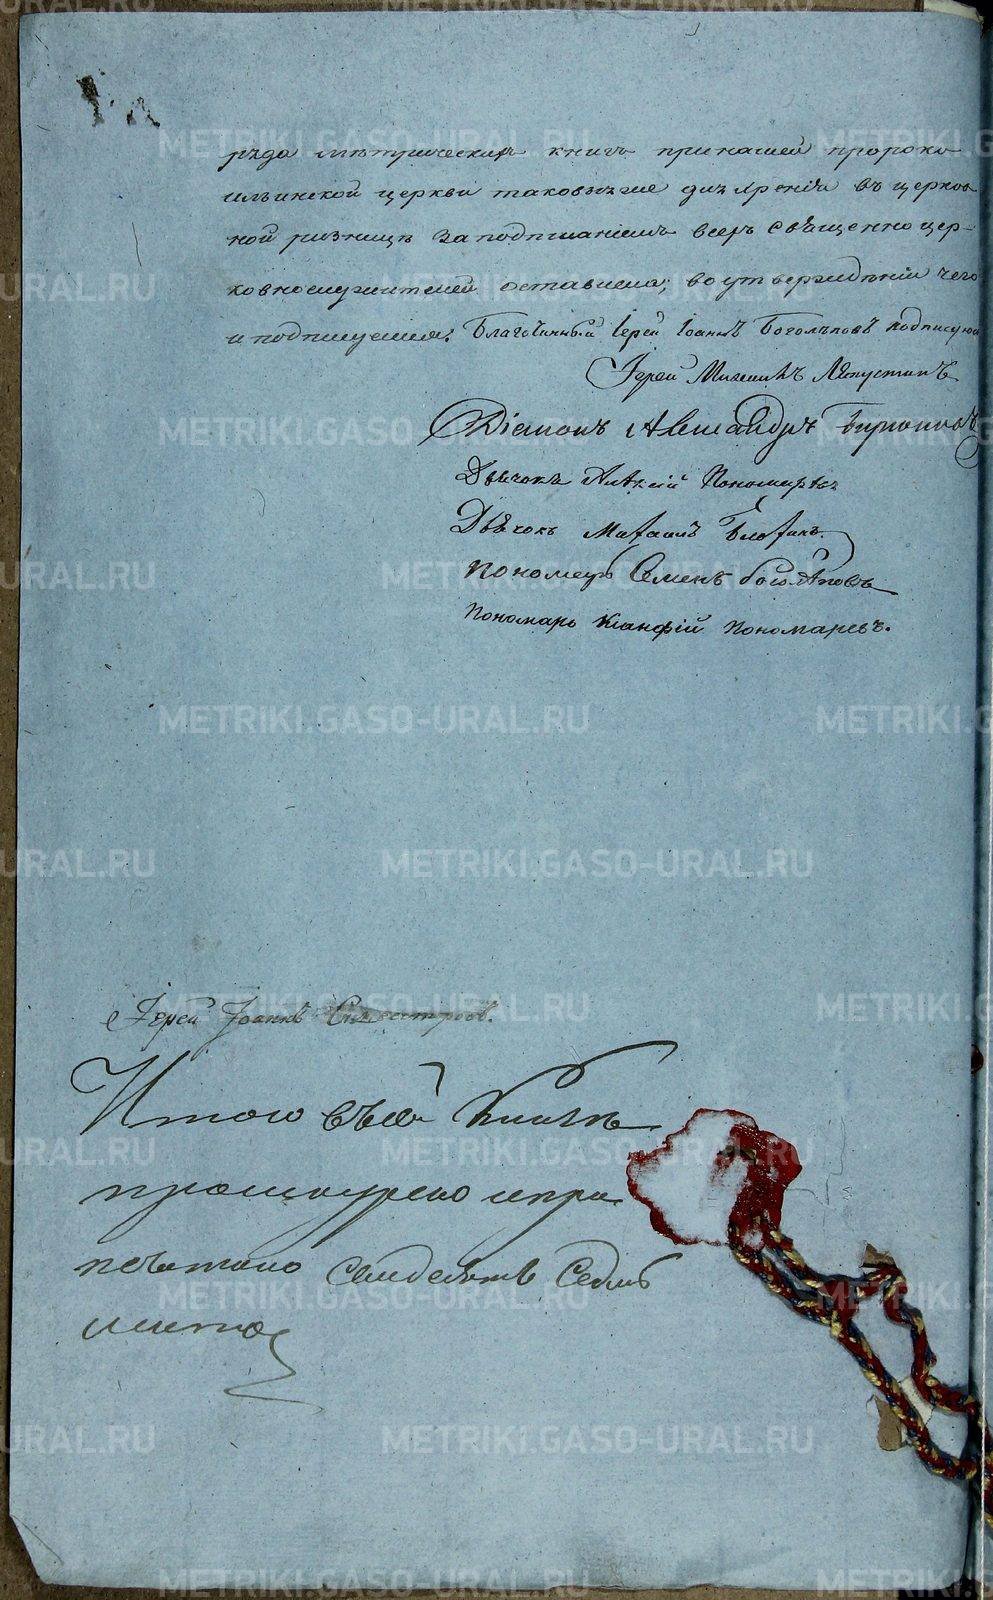 ряда метрическихъ книгъ принашей пророко
ильинской церкви таковыеже для хренія въ церков
ной ризницѣ заподписаніемъ всехъ священно цер-
ковнослужителей оставлены; во утвержденіи чего
и подпишемся. Благочинный Іерей Іоаннъ Боголѣповъ подписуюсь
Іерей Михаилъ Ляпустинъ
Діаконъ Александръ Бирюковъ
Дьячокъ Алексій Пономаревъ
Дьячокъ Михаилъ
Пономарь Семенъ Боголѣповъ
Пономарь Ксанфій Пономаревъ.
Іерей Іоаннъ Сильвестровъ.
Итого въ сей Книгѣ
прошнурено и при
печатано Семдесятъ Седмь
листовъ
METRIKI.GASO-URAL.RU